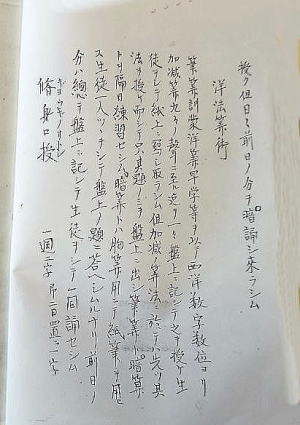 授ク但日々前日ノ分ヲ暗誦シ来ラシム
洋法算術
筆算訓蒙洋算早学等ヲ以テ西洋数字数位ヨリ
加減算九々ノ聲ニ至ル迄ヲ一々盤上ニ記シテ之ヲ授ケ生
徒ヲシテ紙上ニ写シ取ラシム但加減算法ニ於テハ先ツ其
法ヲ授ケ而シテ只其題ノミヲ盤上ニ出シ筆算ト暗算
トヲ隔日練習セシム暗算トハ胸算用ニテ紙筆ヲ用ヒ
ス生徒一人ツヽヲシテ盤上ノ題ニ答ヘシムルナリ前日ノ
分ハ總テ盤上ニ記シテ生徒ヲシテ一同誦セシム
修身口授 一週二字即二日置ニ一字